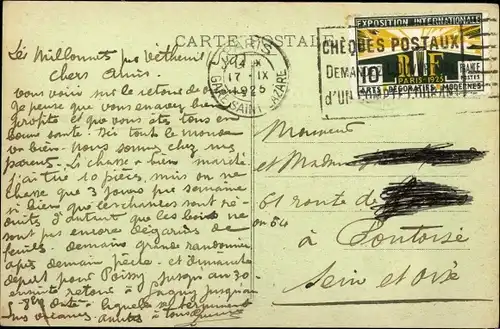 CARTE POSTALE
Les Millonnets par Vétheuil
chers amis.
vous voici sur le retour
Je pense que vous en avez bien
profité et que vous êtes tous en
bonne santé. Ici tout le monde
va bien. nous sommes chez mes
parents. La chasse a bien marché
j'ai tué 10 pièces, mais on ne
chasse que 3 jours par semaine
si bien que les chances sont ré-
duites d'autant que les bois ne
sont pas encore dégarnis de
feuilles. demain grande randonnée
après demain pêche. et dimanche
départ pour Poissy jusqu'au 30
ensuite retour à Lagny jusqu'au
8 Octo
vacances. amitiés à tous
PARIS
17 - IX
1925
GARE SAINT-LAZARE
CHÈQUES POSTAUX
DEMANDEZ
d'UN COMPTE COURANT
EXPOSITION INTERNATIONALE
10c
FRANCE
POSTES
PARIS-1925
ARTS DÉCORATIFS MODERNES
Monsieur
et Madame
61 route de
à Pontoise
Seine et Oise